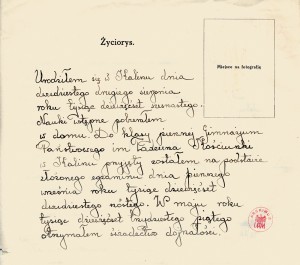 Życiorys.
Miejsce na fotografię
Urodziłem się w Kalinu dnia
dwudziestego drugiego sierpnia
roku tysiąc dziewięćset szesnastego.
Nauki wstępne pobrałem
w domu. Do klasy pierwszej Gimnazjum
Państwowego im. Tadeusza Kościuszki
w przyjęty zostałem na podstawie
złożonego egzaminu dnia pierwszego
września roku tysiąc dziewięćset
dwudziestego szóstego. W maju roku
tysiąc dziewięćset trzydziestego piątego
otrzymałem świadectwo dojrzałości.